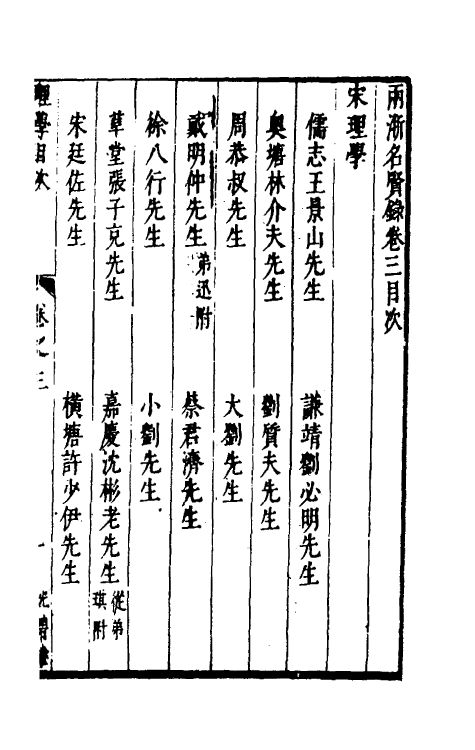 兩浙名賢錄卷三目次
宋理學
儒志王景山先生　謙靖劉必明先生
奧塘林介夫先生　劉質夫先生
周恭叔先生　大劉先生
戴明仲先生弟迅附　蔡君濟先生
徐八行先生　小劉先生
草堂張子克先生　嘉慶沈彬老先生從弟琪附
宋廷佐先生　橫塘許少伊先生
理學目次　卷之三　一　光碧堂